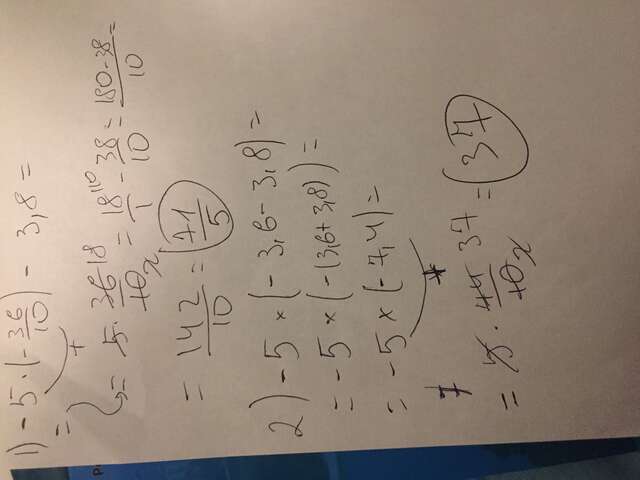 1) -5·(-36/10) - 3,8 =
+
= 5 · 36 18/10 2 = 18 10/1 - 38/10 = 180-38/10 =
= 142/10 = 71/5
2) -5 × (-3,6 - 3,8) =
= -5 × (-(3,6+3,8)) =
= -5 × (-7,4) =
+
= 5 · 74 37/10 2 = 37